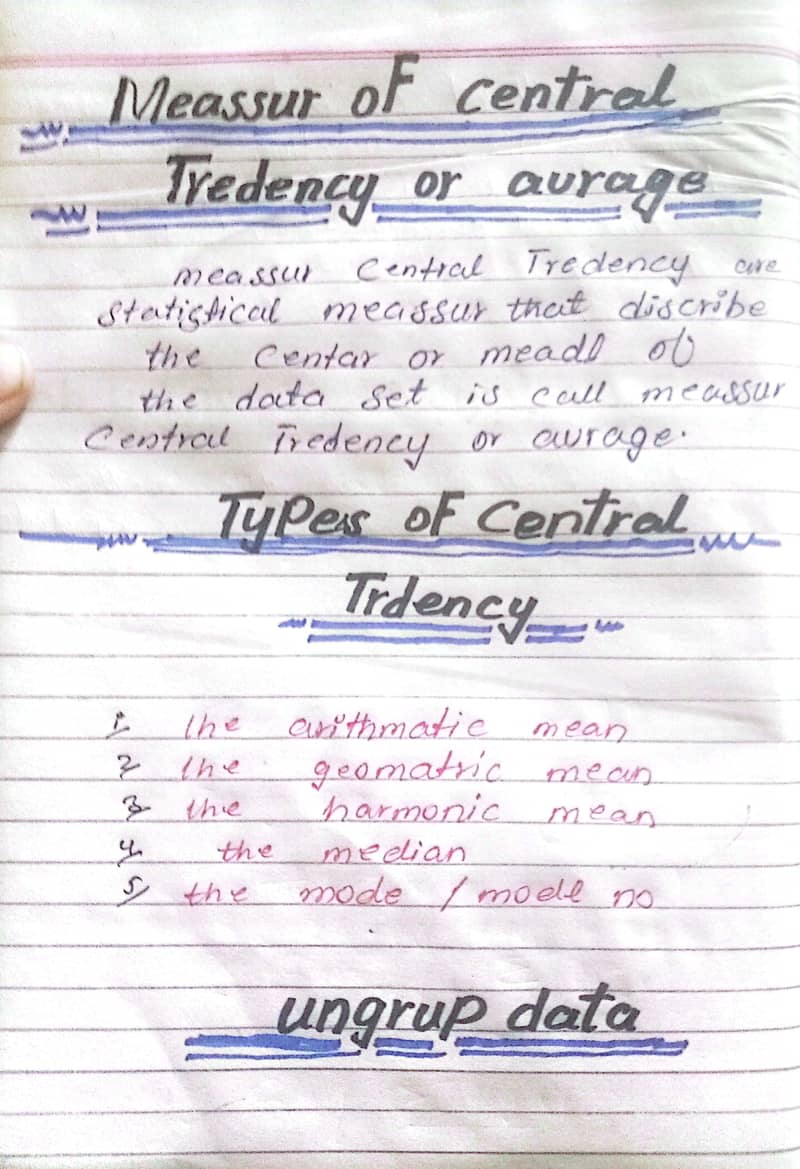 Meassur of central
Tredency or aurage
meassur Central Tredency are
statistical meassur that discribe
the Centar or meadl of
the data set is call meassur
Central Tredency or aurage.
Types of Central
Trdency
1 the arithmatic mean
2 the geomatric mean
3 the harmonic mean
4 the median
5 the mode / modl no
ungrup data